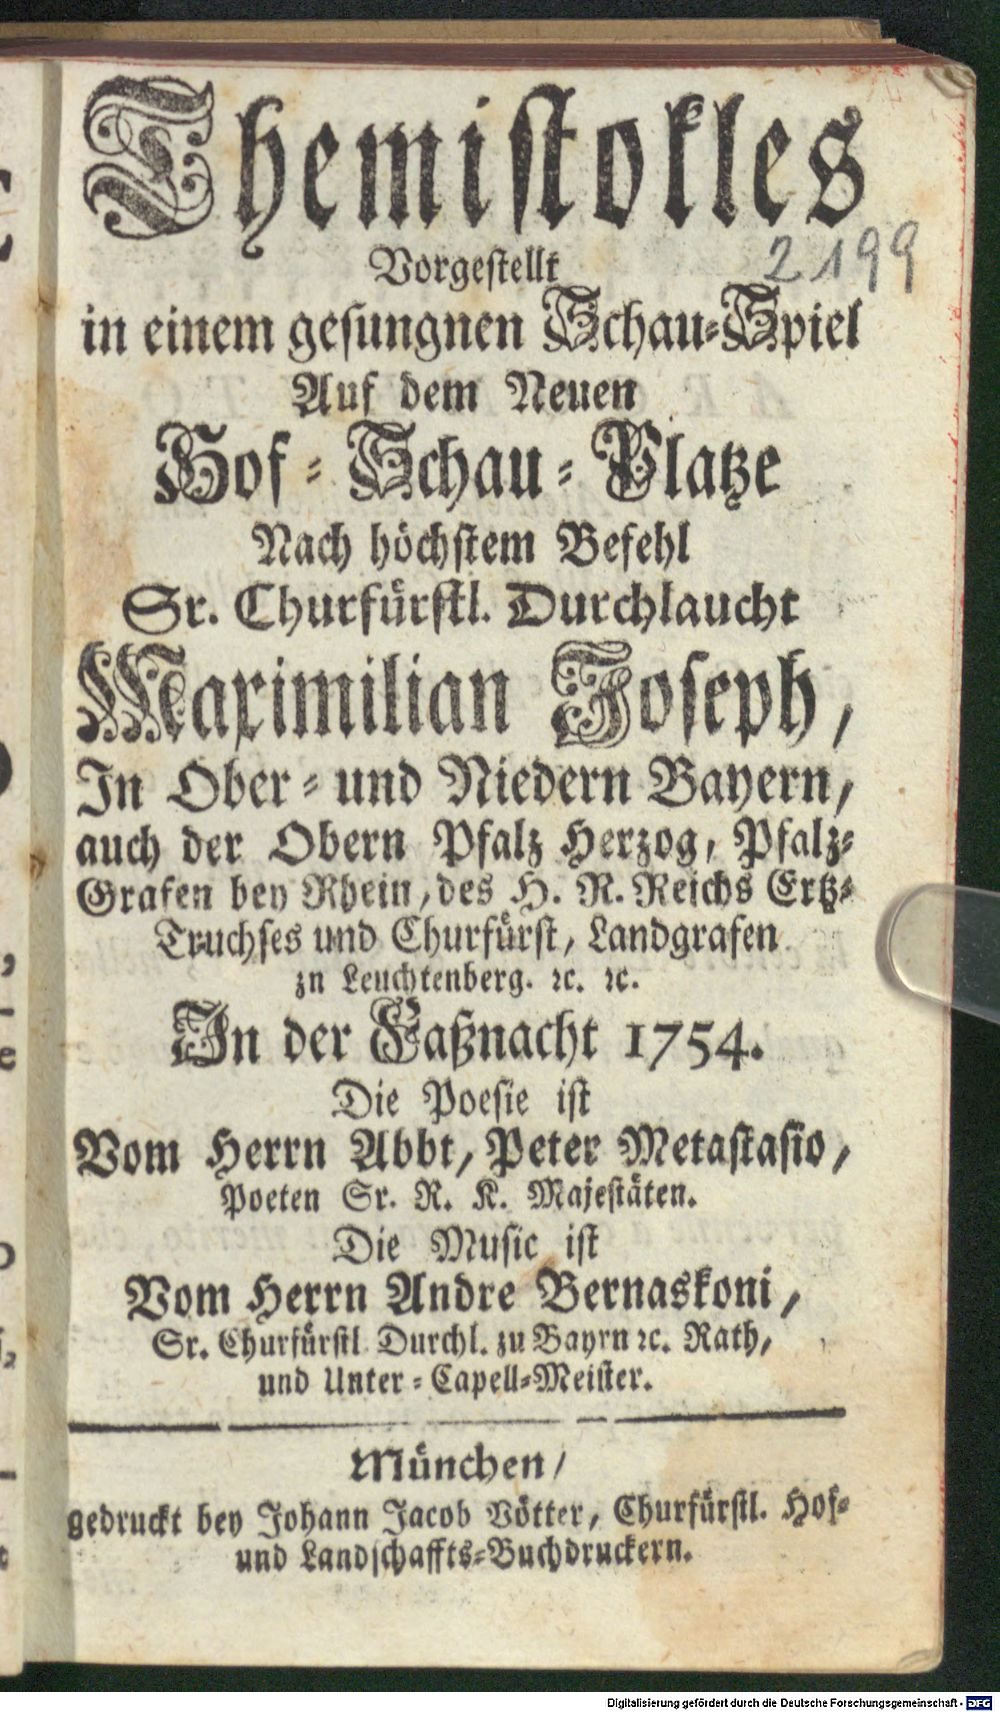 Themistokles
2199
Vorgestellt
in einem gesungnen Schau-Spiel
Auf dem Neuen
Hof-Schau-Platze
Nach höchstem Befehl
Sr. Churfürstl. Durchlaucht
Maximilian Joseph,
In Ober- und Niedern Bayern,
auch der Obern Pfalz Herzog, Pfalz-
Grafen bey Rhein, des H. R. Reichs Ertz-
Truchses und Churfürst, Landgrafen
zu Leuchtenberg. ꝛc. ꝛc.
In der Faßnacht 1754.
Die Poesie ist
Vom Herrn Abbt, Peter Metastasio,
Poeten Sr. R. K. Majestäten.
Die Music ist
Vom Herrn Andre Bernaskoni,
Sr. Churfürstl. Durchl. zu Bayrn ꝛc. Rath,
und Unter-Capell-Meister.
München/
gedruckt bey Johann Jacob Vötter, Churfürstl. Hof-
und Landschaffts-Buchdruckern.
Digitalisierung gefördert durch die Deutsche Forschungsgemeinschaft - DFG